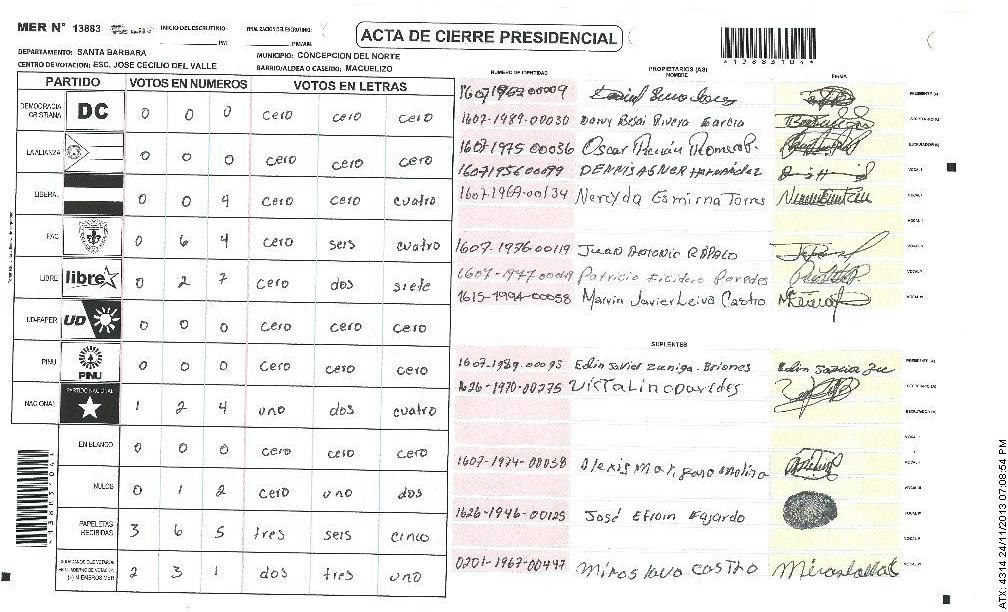 MER N° 13883
INICIO DEL ESCRUTINIO: PM
FINALIZACION DEL ESCRUTINIO: PM/AM
ACTA DE CIERRE PRESIDENCIAL
*13883104*
DEPARTAMENTO: SANTA BARBARA
MUNICIPIO: CONCEPCION DEL NORTE
CENTRO DE VOTACION: ESC. JOSE CECILIO DEL VALLE
BARRIO/ALDEA O CASERIO: MACUELIZO
PARTIDO VOTOS EN NUMEROS VOTOS EN LETRAS
DEMOCRACIA CRISTIANA DC 0 0 0 cero cero cero
LA ALIANZA 0 0 0 cero cero cero
LIBERAL 0 0 4 cero cero cuatro
FAC 0 6 4 cero seis cuatro
LIBRE libre 0 2 7 cero dos siete
UD-FAPER UD 0 0 0 cero cero cero
PINU PINU 0 0 0 cero cero cero
NACIONAL PARTIDO NACIONAL 1 2 4 uno dos cuatro
EN BLANCO 0 0 0 cero cero cero
NULOS 0 1 2 cero uno dos
PAPELETAS RECIBIDAS 3 6 5 tres seis cinco
(+) MIEMBROS MER 2 3 1 dos tres uno
NUMERO DE IDENTIDAD PROPIETARIOS (AS) NOMBRE FIRMA
1607196200009 PRESIDENTE (A)
1607-1989-00030 Dony Besai Rivera Garcia
1607-1975 00036 Oscar ESCRUTADOR (A)
1607195600099 DENNIS AGNER HERNÁNDEZ VOCAL I
1607-1969-00134 Nereyda Esmirna Torres VOCAL II
1607-1976-00119 Juan Antonio
1607-1947-00019 Patricio Paredes
1615-1994-00058 Marvin Javier Leiva Castro
SUPLENTES
1607-1989-00095 Edin Javier Zuniga Briones PRESIDENTE (A)
1626-1970-00275 Vistalino paredes
ESCRUTADOR (A)
VOCAL I
1607-1974-00058 Alexis molina
1626-1946-00125 José Efrain Fajardo
0201-1967-00447 Miroslava CASTRO
*13883104*
ATX: 4314 24/11/2013 07:08:54 PM